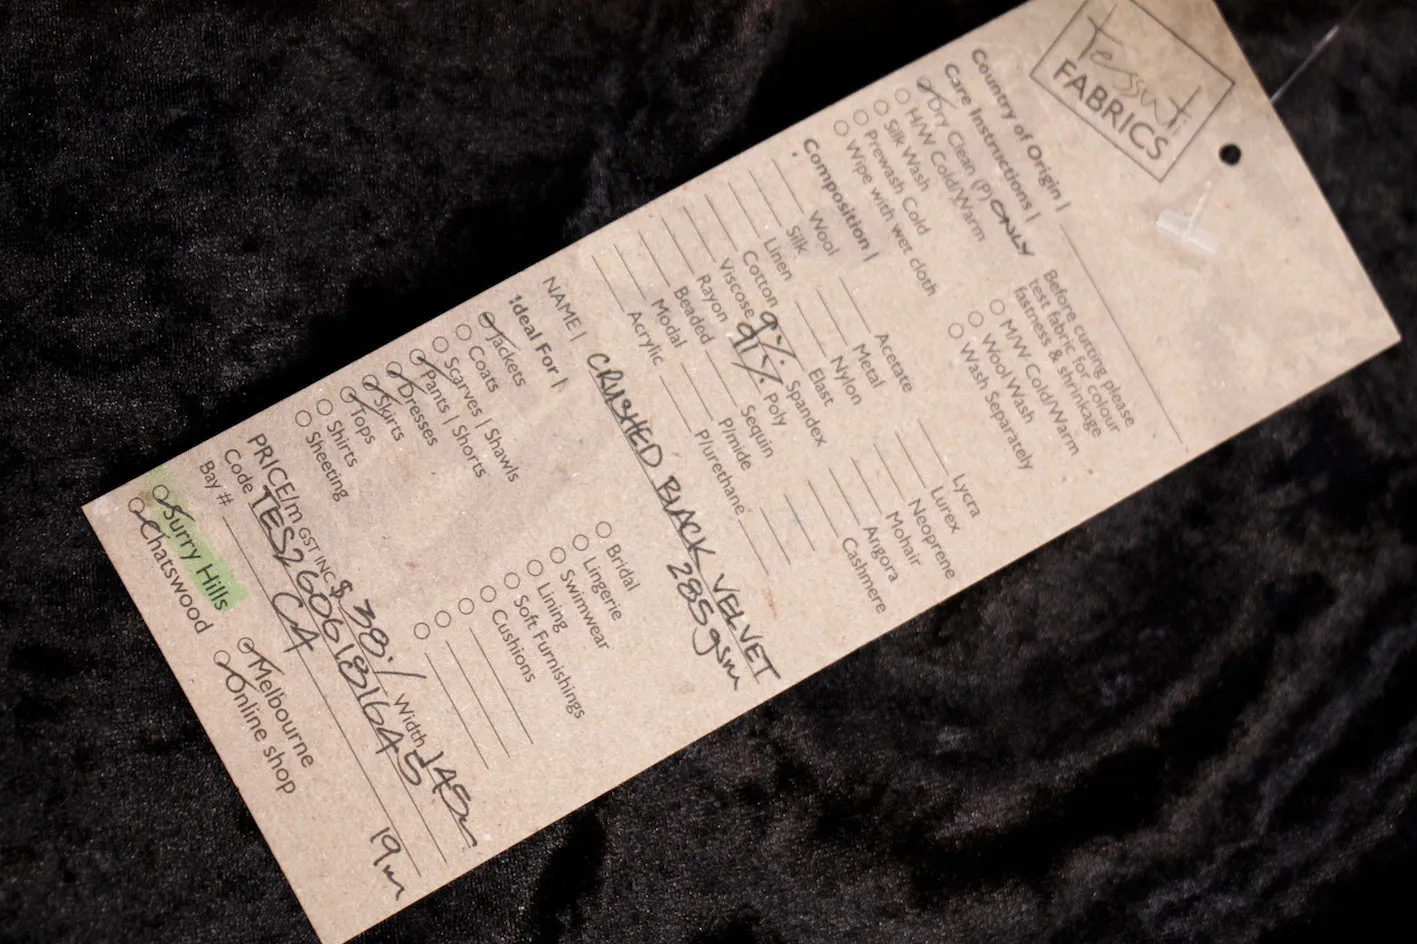 Tessuti
FABRICS
Country of Origin |
Care Instructions |
Dry Clean (P) ONLY
H/W Cold/Warm
Silk Wash
Prewash Cold
Wipe with wet cloth
Before cutting please
test fabric for colour
fastness & shrinkage
M/W Cold/Warm
Wool Wash
Wash Separately
Composition |
Wool
Silk
Linen
Cotton
Viscose
Rayon
Beaded
Modal
Acrylic
Acetate
Metal
Nylon
Elast
9% Spandex
91% Poly
Sequin
P/mide
P/urethane
Lycra
Lurex
Neoprene
Mohair
Angora
Cashmere
NAME | CRUSHED BLACK VELVET
285gsm
Ideal For |
Jackets
Coats
Scarves | Shawls
Pants | Shorts
Dresses
Skirts
Tops
Shirts
Sheeting
Bridal
Lingerie
Swimwear
Lining
Soft Furnishings
Cushions
PRICE/m GST INC $38./ Width 145
Code TES260618164
Bay # CA 19m
Surry Hills
Chatswood
Melbourne
Online shop